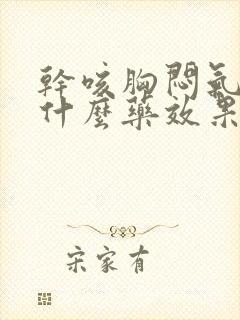 幹咳胸悶氣
什麼藥效果
宋家有